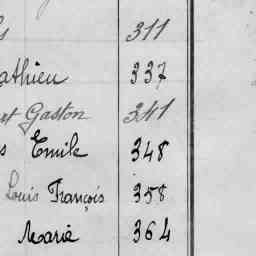 s 311
athieu 337
et Gaston 341
s Emile 348
Louis François 358
Marie 364